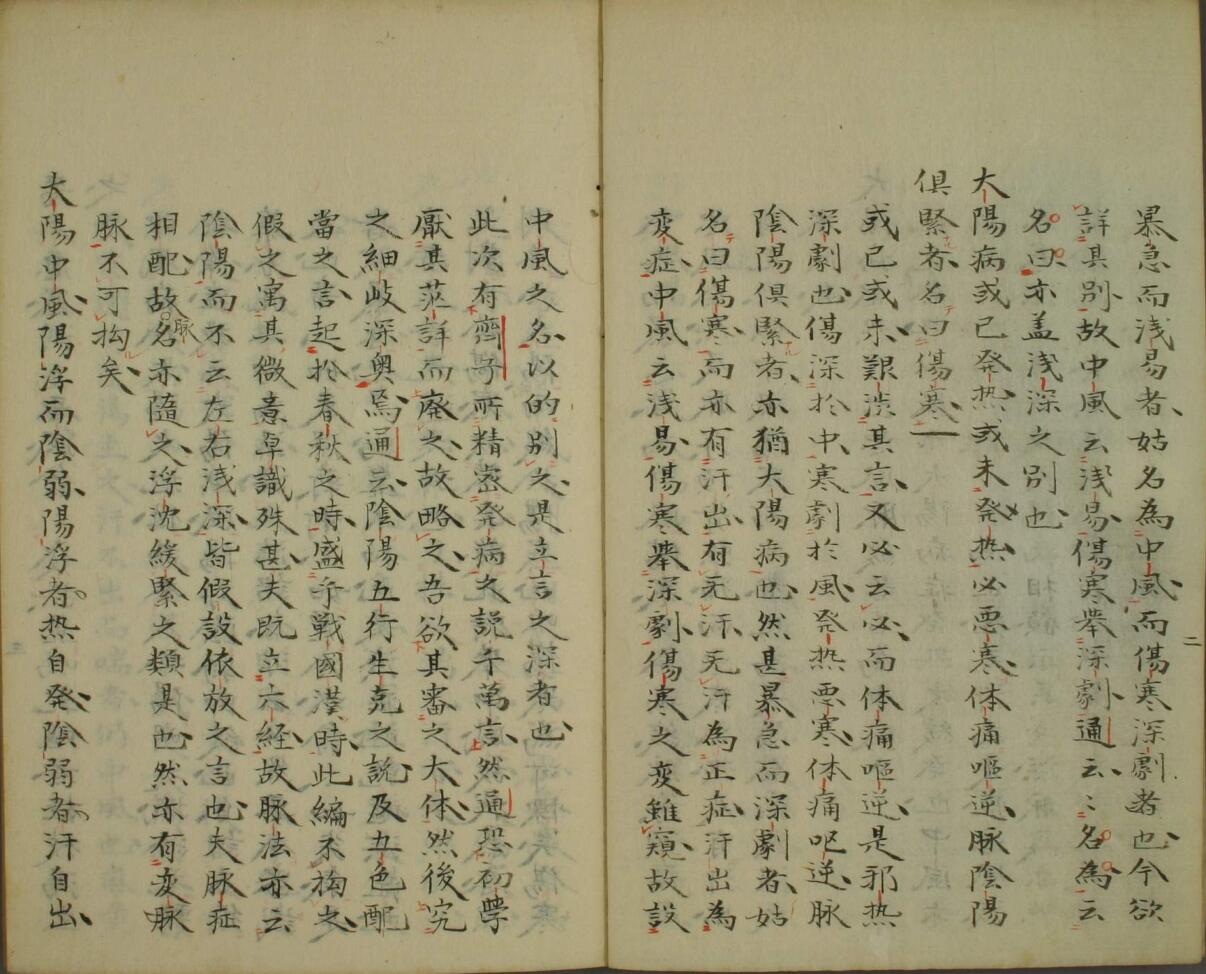 暴急而浅易者姑名為中風而傷寒深劇者也今欲
詳其別故中風云浅易傷寒挙深劇通云〻名為云
名曰亦盖浅深之別也
大陽病或已発热或未発热必悪寒体痛嘔逆脉陰陽
倶緊者名曰傷寒
或已或未艱渋其言又必云必而体痛嘔逆是邪热
深劇也傷深於中寒劇於風発热悪寒体痛呕逆脉
陰陽倶緊者亦猶大陽病也然甚暴急而深劇者姑
名曰傷寒而亦有汗出有无汗无汗為正症汗出為
変症中風云浅易傷寒挙深劇傷寒之変雖窺故設
二
中風之名以的別之是立言之深者也
此次有齊子所精密発病之説千萬言然通恐初學
厭其茫詳而廃之故略之吾欲其審之大体然後究
之細岐深奥焉通云陰陽五行生克之説及五色配
當之言起於春秋之時盛乎戰國漢時此編不拘之
假之寓其微意卓識殊甚夫既立六経故脉法亦云
陰陽而不云左右浅深皆假設依放之言也夫脉症
相配故脉名亦隨之浮沈緩緊之類是也然亦有変脉
脉不可拘矣
太陽中風陽浮而陰弱陽浮者热自発陰弱者汗自出
三